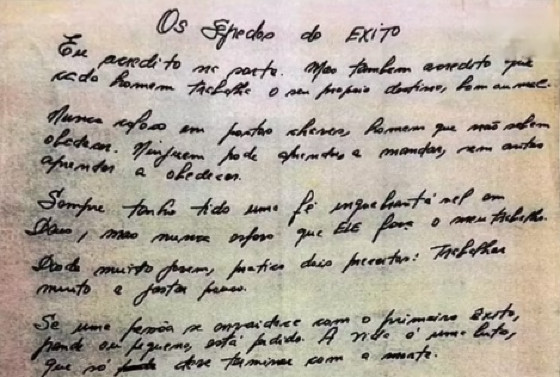 Os Segredos do EXITO
Eu acredito na sorte. Mas tambem acredito que
cada homem trabalha o seu proprio destino, bom ou mal.
Nunca coloco em postos chaves, homem que não sabem
obedecer. Ninguem pode aprender a mandar, sem antes
aprender a obedecer.
Sempre tenho tido uma fé inquebrantável em
Deus, mas nunca espero que ELE faça o meu trabalho.
Desde muito jovem, pratico dois preceitos: Trabalhar
muito e gastar pouco.
Se uma pessoa se envaidece com o primeiro exito,
grande ou pequeno, está perdido. A vida é uma luta,
que só deve terminar com a morte.